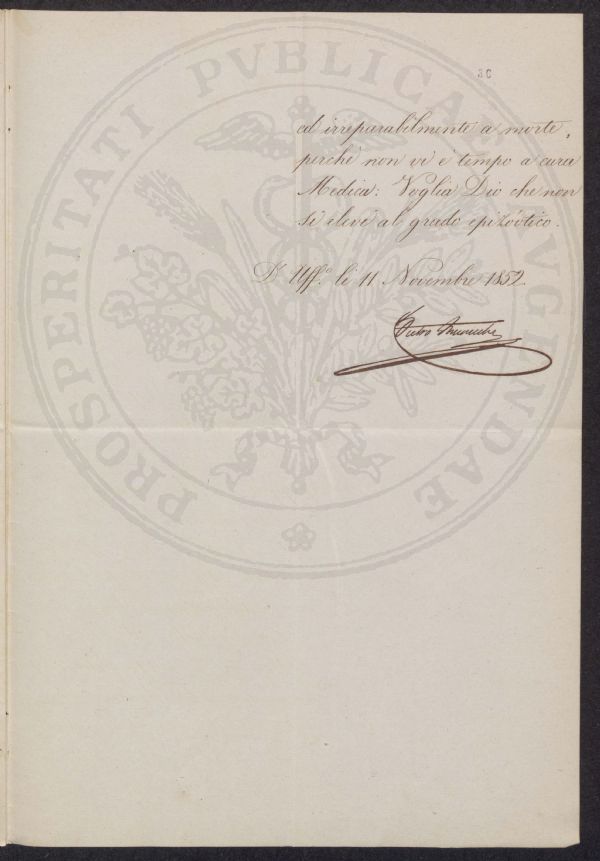 PROSPERITATI PVBLICAE AVGENDAE
30
ed irreparabilmente a morte,
perchè non vi è tempo a cura
Medica: Voglia Dio che non
si elevi al grado epizöotico.
D' Uff.º li 11 Novembre 1852